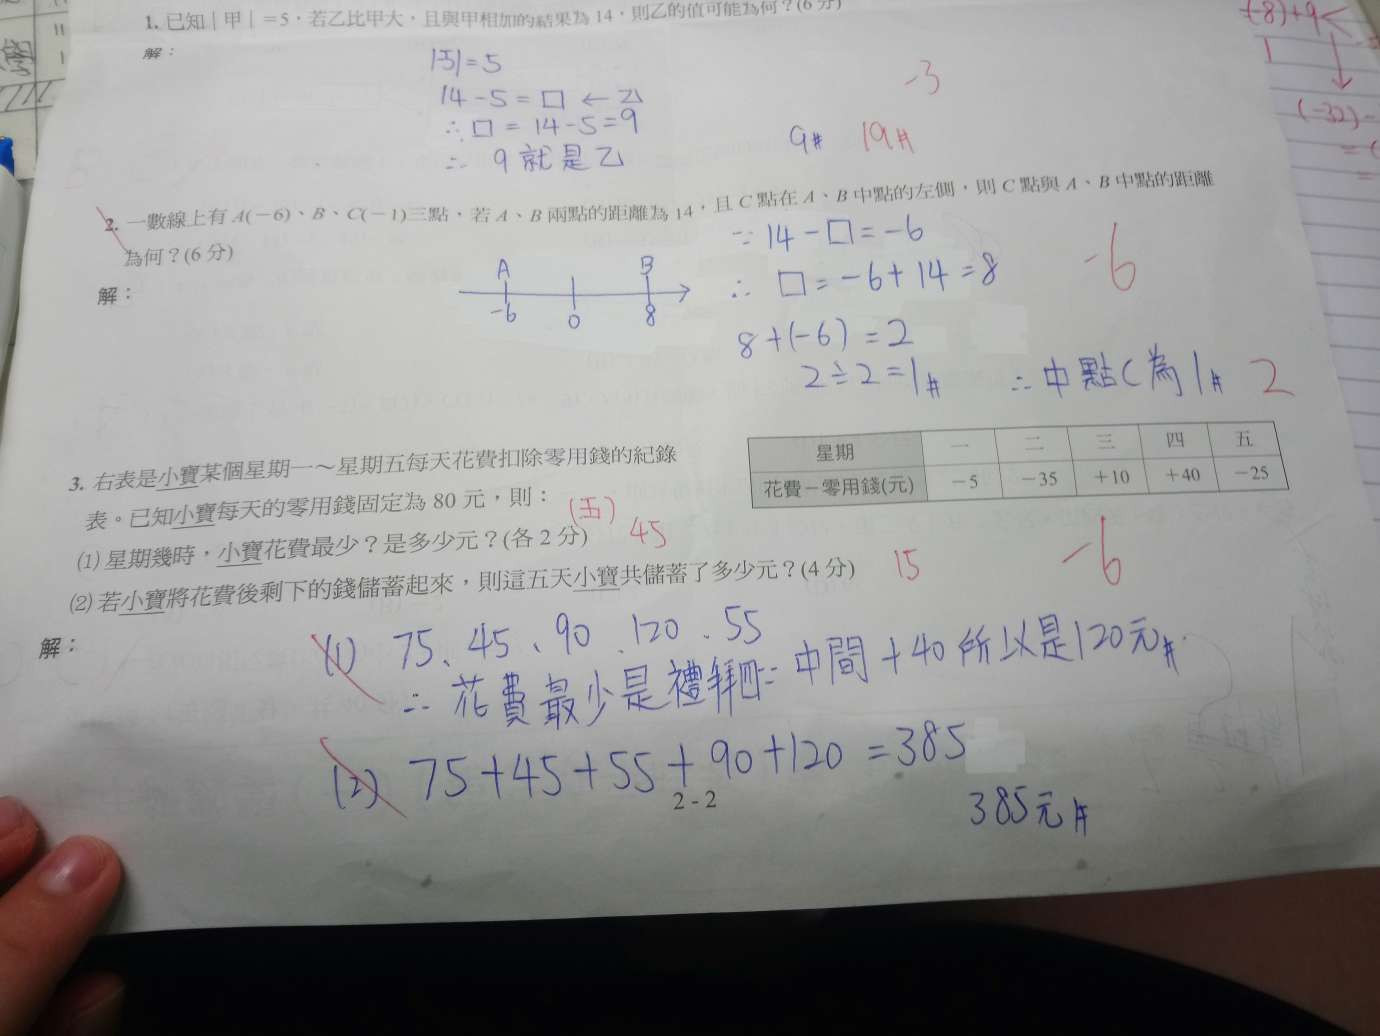 1. 已知｜甲｜＝5，若乙比甲大，且與甲相加的結果為14，則乙的值可能為何？(6分)
解：
|-5|=5
14-5=□←乙
∴□=14-5=9
∴ 9就是乙
9#
19#
-3
(-8)+9
1
(-32)-
2. 一數線上有A(－6)、B、C(－1)三點，若A、B兩點的距離為14，且C點在A、B中點的左側，則C點與A、B中點的距離
為何？(6分)
解：
A B
-6 0 8
∵14-□=-6
∴ □=-6+14=8
8+(-6)=2
2÷2=1#
∴中點C為1#
2
-6
3. 右表是小寶某個星期一～星期五每天花費扣除零用錢的紀錄
表。已知小寶每天的零用錢固定為80元，則：
⑴ 星期幾時，小寶花費最少？是多少元？(各2分)
(五) 45
⑵ 若小寶將花費後剩下的錢儲蓄起來，則這五天小寶共儲蓄了多少元？(4分)
15
-6
星期 一 二 三 四 五
花費－零用錢(元) －5 －35 ＋10 ＋40 －25
解：
(1) 75、45、90、120、55
∴花費最少是禮拜四∵中間+40所以是120元#
(2) 75+45+55+90+120=385
385元#
2-2